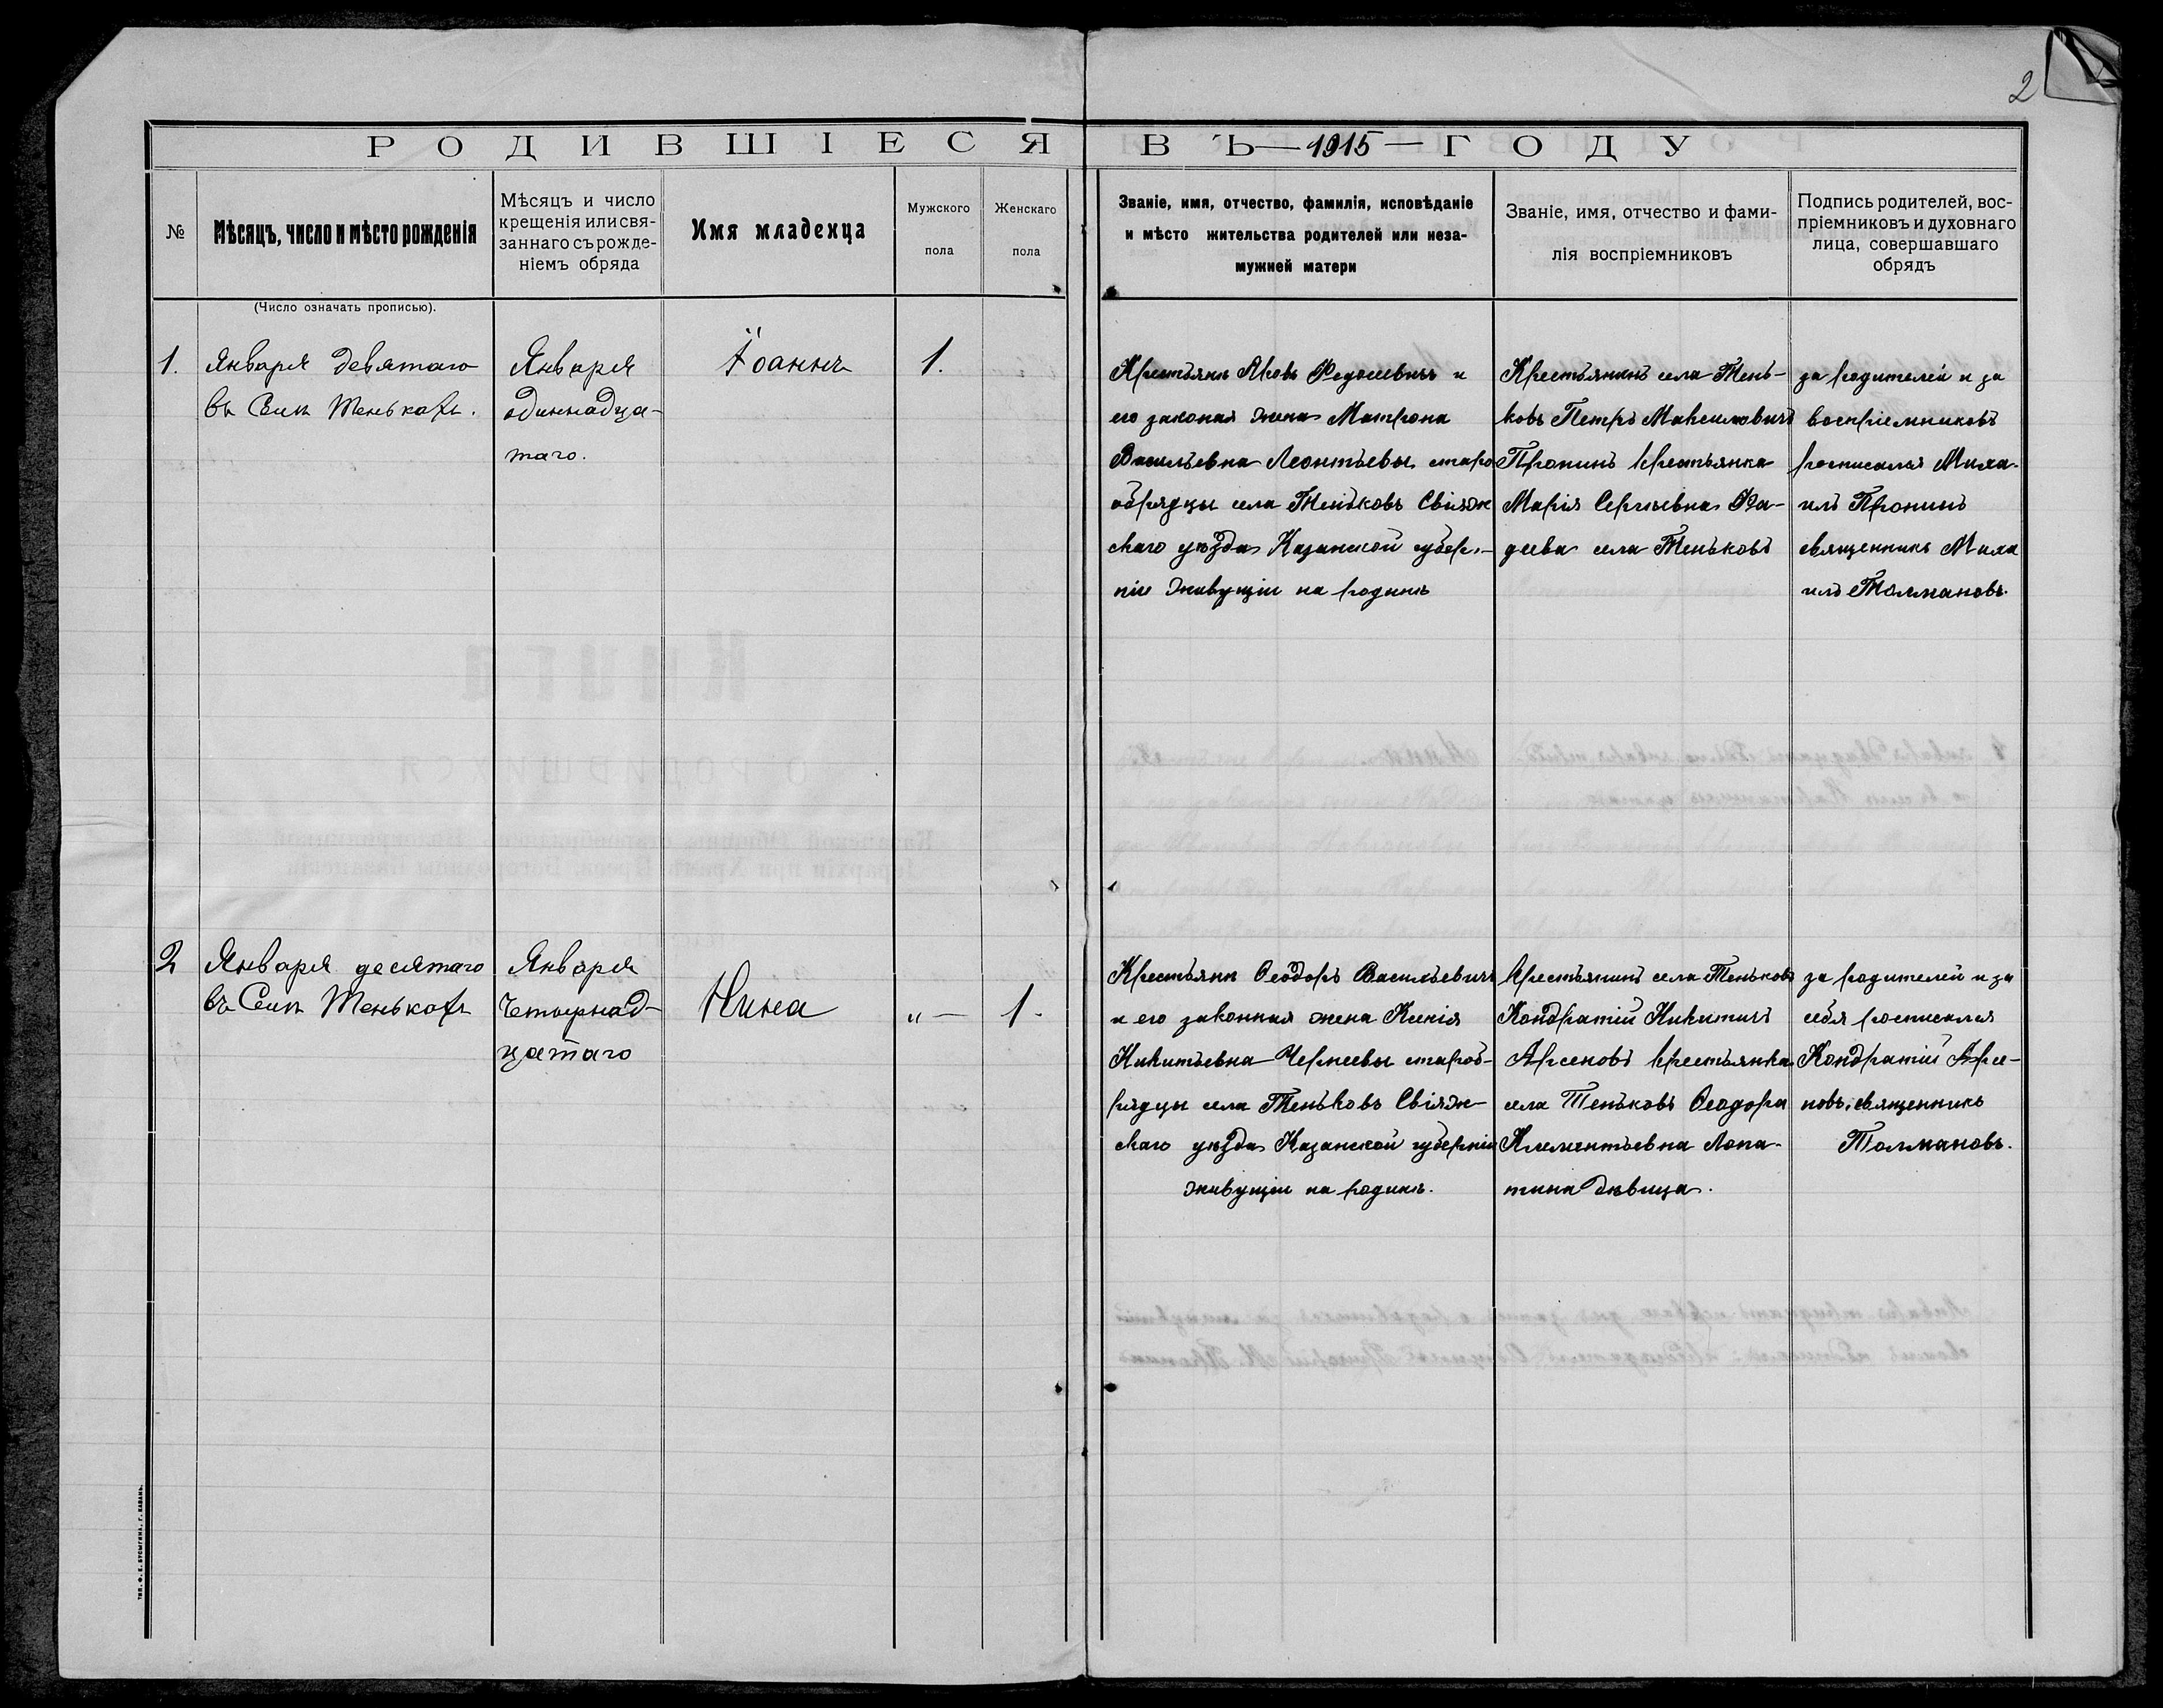 2
РОДИВШІЕСЯ ВЪ — 1915 — ГОДУ
№
Мѣсяцъ, число и мѣсто рожденія
Мѣсяцъ и число
крещенія или свя-
заннаго съ рожде-
ніемъ обряда
Имя младенца
Мужского
пола
Женскаго
пола
Званіе, имя, отчество, фамилія, исповѣданіе
и мѣсто жительства родителей или неза-
мужней матери
Званіе, имя, отчество и фами-
лія воспріемниковъ
Подпись родителей, вос-
пріемниковъ и духовнаго
лица, совершавшаго
обрядъ
(Число означать прописью).
1.
Января девятаго
въ Селѣ Тенькахъ.
Января
одиннадца-
таго.
Іоаннъ
1.
Крестьянъ Яковъ Федосеевичъ и
его законая жена Матрона
Васильевна Леонтьевы старо
обрядцы села Теньковъ Свіяж
скаго уѣзда Казанской губер-
ніи живущіи на родинѣ
Крестьянинъ села Тень-
ковъ Петръ Максимовичъ
Пронинъ крестьянка
Марія Сергѣевна Фа-
деева села Теньковъ
за родителей и за
воспріемниковъ
росписался Миха-
илъ Пронинъ
священникъ Миха
илъ Толмановъ.
2
Января десятаго
въ Селѣ Тенькахъ
Января
Четырнад-
цатаго
Нина
„ —
1.
Крестьянъ Ѳеодоръ Васильевичъ
и его законная жена Ксенія
Никитьевна Чернеевы староб-
рядцы села Теньковъ Свіяж-
скаго уѣзда Казанской губерніи
живущіи на родинѣ.
крестьянинъ села Теньковъ
Кондратій Никитичъ
Арсеновъ крестьянка
села Теньковъ Ѳеодора
Климентьевна Лопа-
тина дѣвица.
за родителей и за
себя росписался
Кондратій Арсе-
новъ, священникъ
Толмановъ.
ТИП. Ф. Е. БУСЫГИНЪ, Г. КАЗАНЬ.